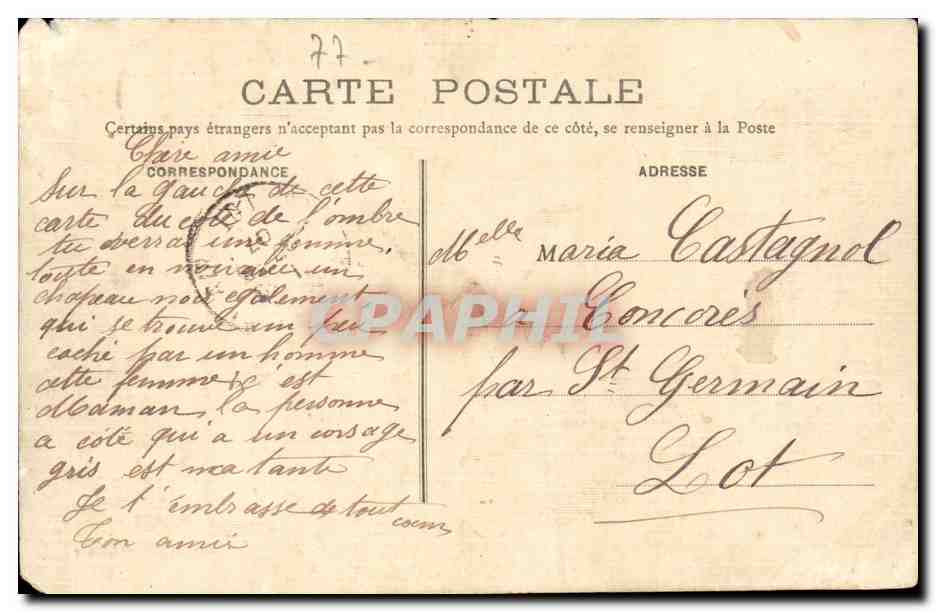 77
CARTE POSTALE
Certains pays étrangers n'acceptent pas la correspondance de ce côté, se renseigner à la Poste
Chère amie
CORRESPONDANCE
Sur la gauche de cette
carte du côté de l'ombre
tu verras une femme
toute en noir avec un
chapeau noir egalement
qui se trouve un peu
caché par un homme
cette femme c'est
Maman, la personne
a côté qui a un corsage
gris est ma tante
Je t'embrasse de tout
coeur
Ton amie
ADRESSE
Melle Maria Castagnol
à Concorès
par St Germain
Lot
CPAPHIL